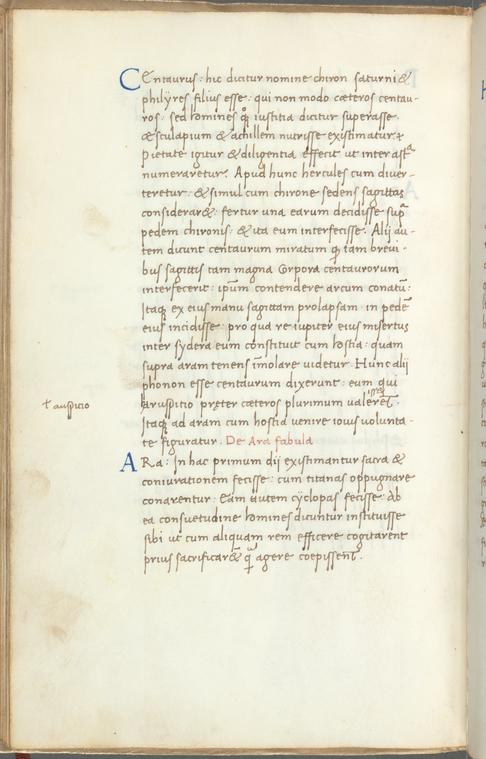 CEntaurus: hic dicitur nomine chiron saturni &
philÿres filius esse: qui non modo cæteros centau-
ros: sed homines quoq̃ iustitia dicitur superasse
&sculapium & achillem nutrisse existimatur
pietate igitur & diligentia effecit ut inter astª
numeraretur. Apud hunc hercules cum diver-
teretur: & simul cum chirone sedens sagittas
considerar&: fertur una earum decidisse supª
pedem chironis: & ita eum interfecisse. Alij au-
tem dicunt centaurum miratum q̃ tam brevi-
bus sagittis tam magna corpora centaurorum
interfecerit: ipũm contendere arcum conatũ:
Itaq̃ ex eius manu sagittam prolapsam in pedẽ
eius incidisse: pro qua re iupiter eius misertus
inter sydera eum constituit cum hostia: quam
supra aram tenens ĩmolare videtur. Hunc alij
phonon esse centaurum dixerunt: eum qui
+ auspicio
haruspitio præter cæteros plurimum valeret.
Itaq̃ ad aram cum hostia venire iovis volunta-
te figuratur. De Ara fabula
ARa: In hac primum dij existimantur sacra &
coniurationem fecisse: cum titanas oppugnare
conarentur: Eam autem cÿclopas fecisse: Ab
ea consuetudine homines dicuntur instituisse
sibi ut cum aliquam rem efficere cogitarent
prius sacrificar& q̃ agere coepissent.